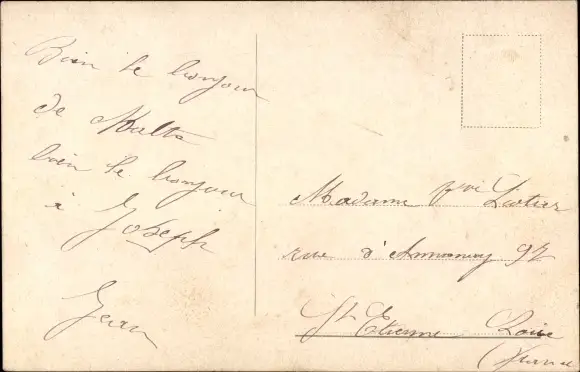 Bien le bonjour
de Malta
bien le bonjour
à Joseph
Jean
Madame Liotier
rue d'Annonay 92
St Etienne Loire
(France